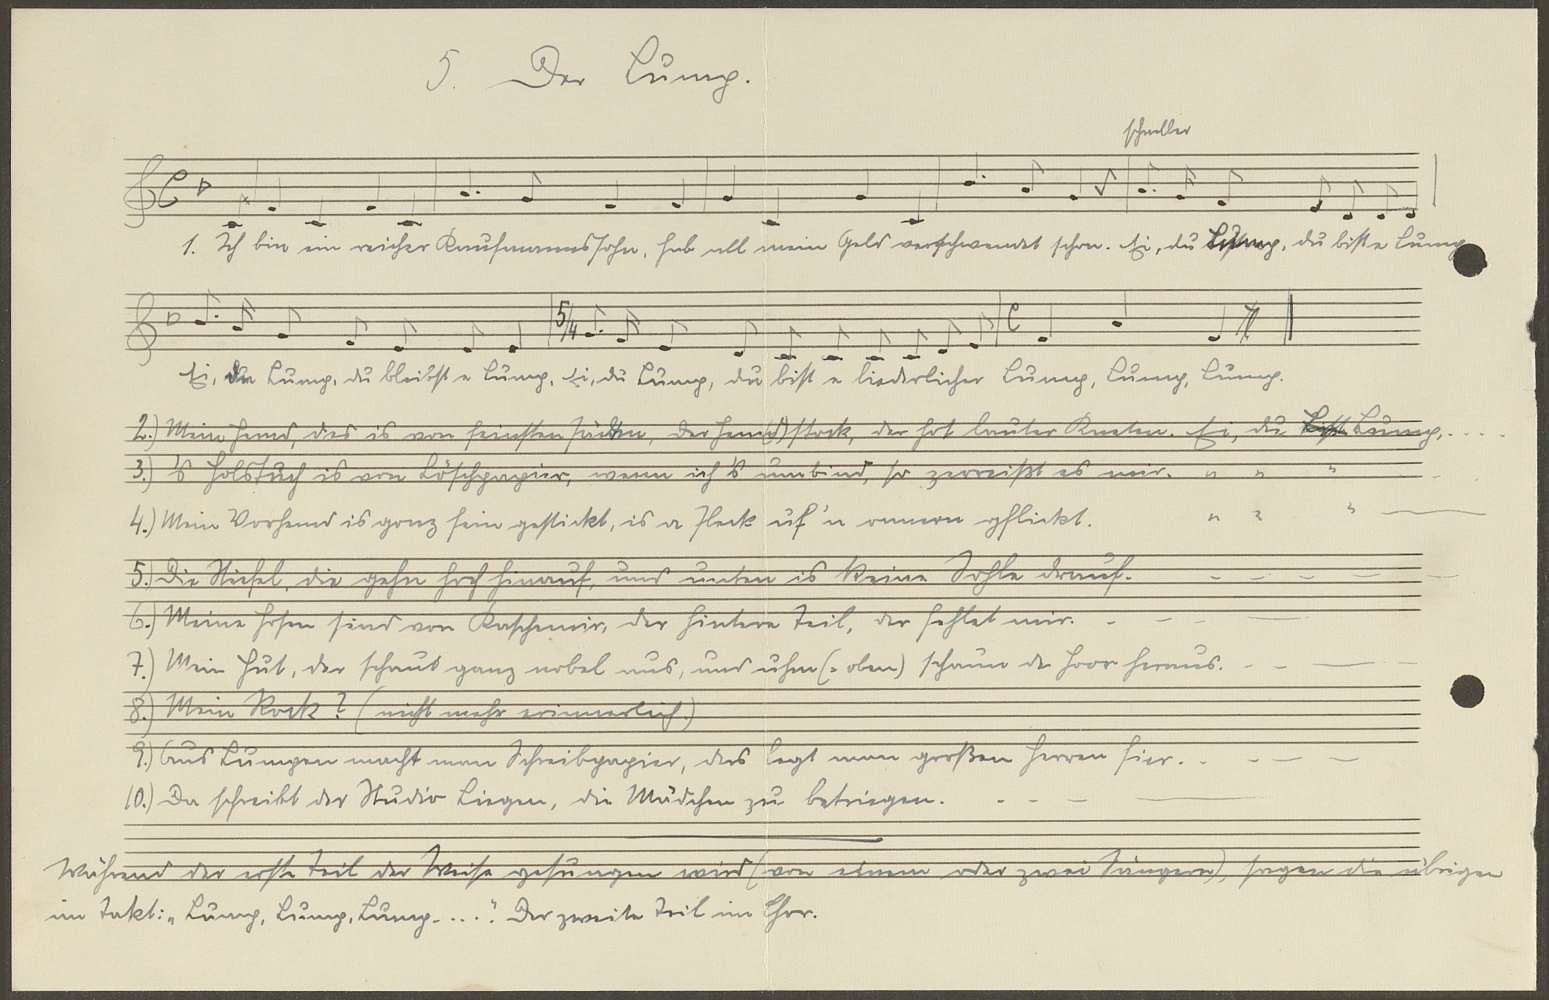 5. Der Lump.
schneller
1. Ich bin ein reicher Kaufmannssohn, hab all mein Geld verschwendet schon. Ei, du Lump, du bist e Lump
5/4
Ei, du Lump, du bleibst e Lump, Ei, du Lump, du bist e liederlicher Lump, Lump, Lump.
2.) Mein Hemd, des is von feinsten Fäden, der Hem(d)stock, der hot lauter Knoten. Ei, du Lump, ....
3.) 's Holstuch is von Löschpapier, wenn ich's umbind, so zerreißt es mir. " " "
4.) Mein Vorhemd is ganz fein gestickt, is a Fleck uf'n annern gflickt. " " "
5.) Die Stiefel, die gehn hoch hinauf, und unten is keine Sohle drauf.
6.) Meine Hosen sind von Kaschemir, der hintere Teil, der fehlet mir.
7.) Mein Hut, der schaut ganz nobel aus, und uhm (= oben) schaun de Hoor heraus.
8.) Mein Rock? (nicht mehr erinnerlich.)
9.) Aus Lumpen macht man Schreibpapier, des legt man großen Herren fier.
10.) Da schreibt der Studio Liegen, die Mädchen zu betriegen.
Während der erste Teil der Weise gesungen wird (von einem oder zwei Sängern), sagen die übrigen
im Takt: „Lump, Lump, Lump....". Der zweite Teil im Chor.